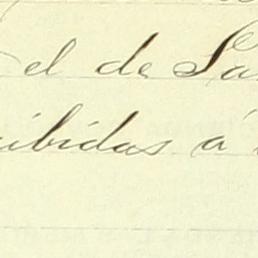 el de Sa
ibidas á